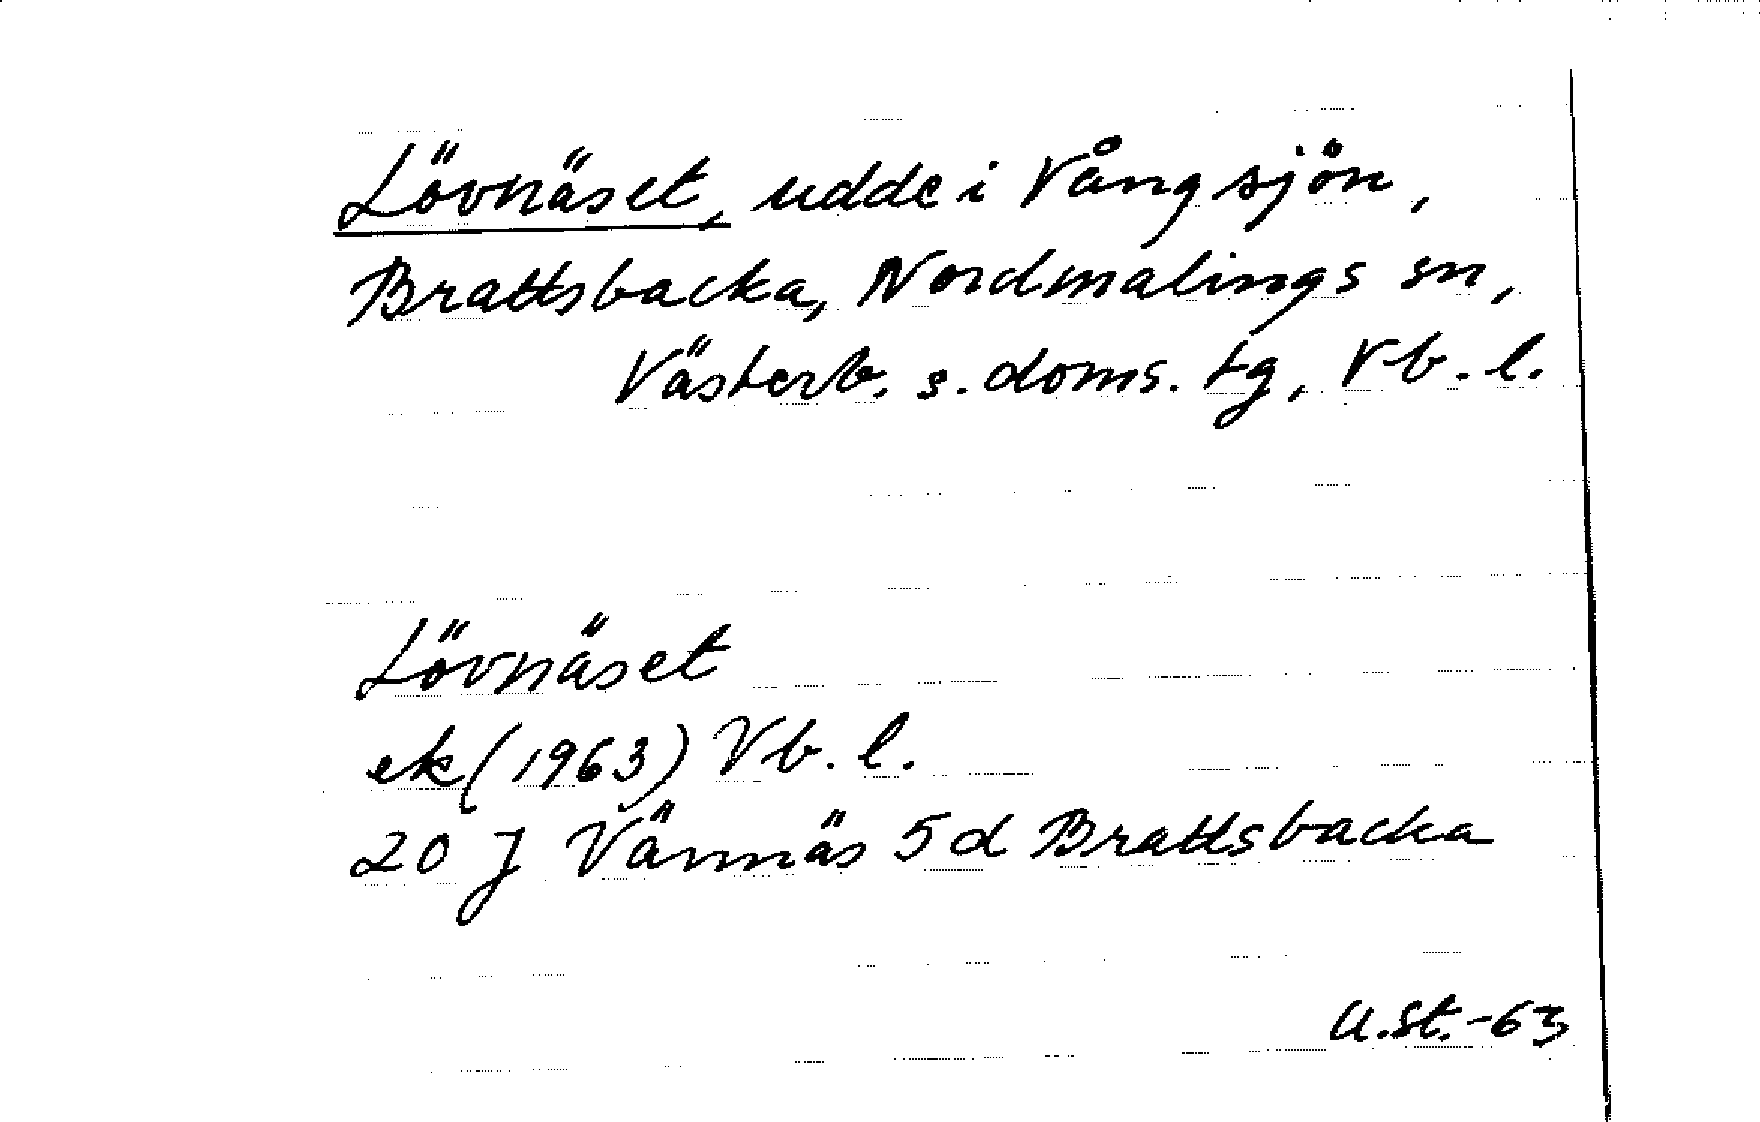 Lövnäset, udde i Vångsjön,
Brattsbacka, Nordmalings sn,
Västerb. s. doms. tg, Vb. l.
Lövnäset
ek (1963) Vb. l.
20 J Vännäs 5d Brattsbacka
U.St.-63